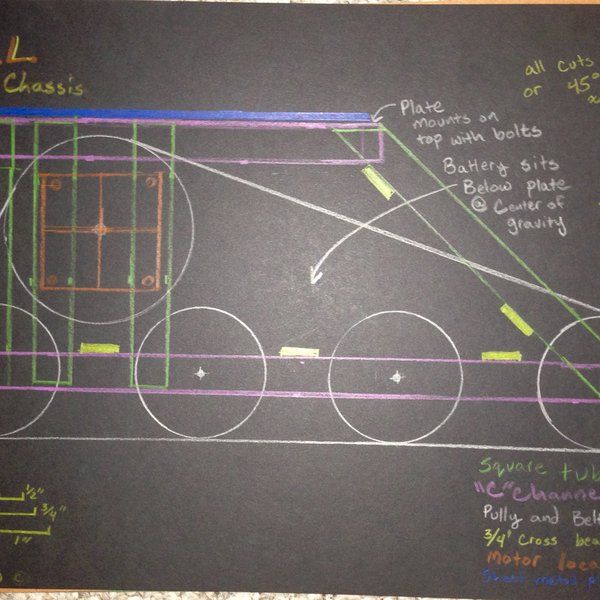 .L.
Chassis
all cuts
or 45°
Plate
mounts on
top with bolts
Battery sits
Below plate
@ Center of
gravity
1/2"
3/4"
1"
Square tub
"C" Channe
Pully and Bel
3/4' Cross bea
Motor loca
Sheet metal pl